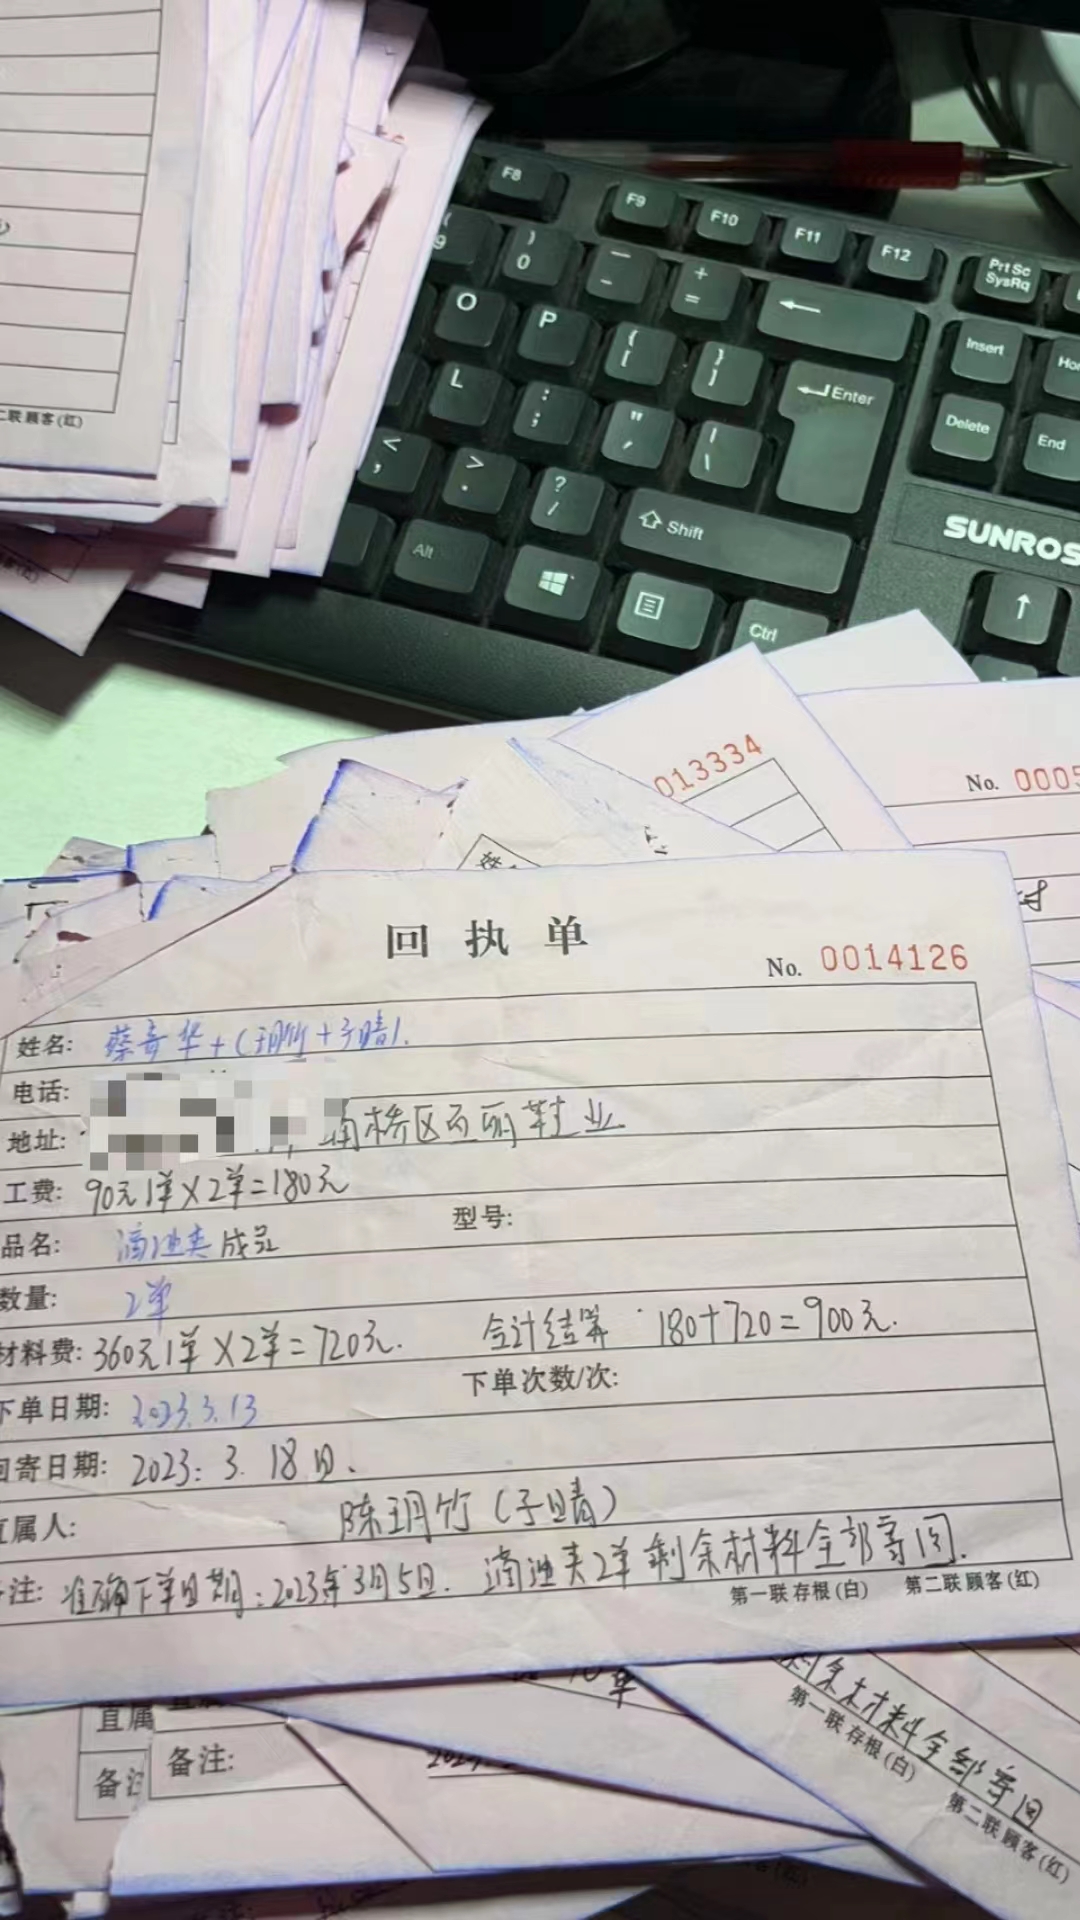 二联 顾客(红)
F8
F9
F10
F11
F12
Prt Sc
SysRq
( 9
) 0
— -
+ =
←
Insert
O
P
{ [
} ]
Enter
Delete
End
L
: ;
" '
| \
< ,
> .
? /
Shift
SUNROS
Alt
Ctrl
↑
013334
No. 0005
回执单
No. 0014126
姓名: 蔡奇华+(玥竹+子晴).
电话:
地址: 桥区 鞋业.
工费: 90元1单×2单=180元
品名: 滴油夹成品
型号:
数量: 2单
材料费: 360元1单×2单=720元.
合计结算 180+720=900元.
下单日期: 2023.3.13
下单次数/次:
回寄日期: 2023.3.18日.
直属人: 陈玥竹(子晴)
备注: 准确下单日期:2023年3月5日. 滴油夹2单剩余材料全部寄回.
第一联 存根(白)
第二联 顾客(红)
单
余材料全部寄回
第一联 存根(白)
第二联 顾客(红)
直属
备注
备注: